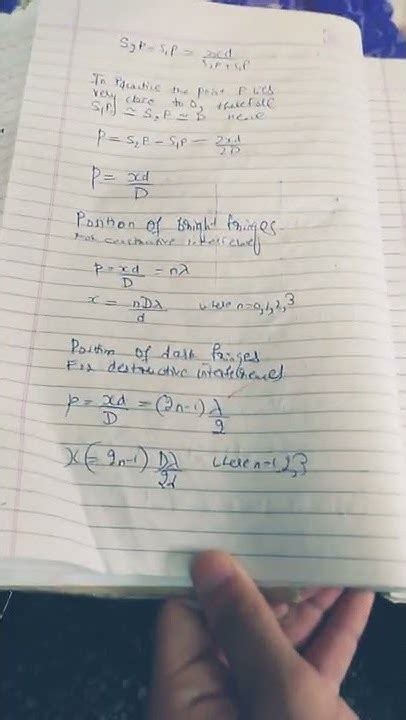 S₂P - S₁P = xcd / S₂P + S₁P
In Practice the point P lies
very close to O, therefore
S₁P ≃ S₂P ≃ D hence
P = S₂P - S₁P = 2xd / 2D
P = xd / D
Position of bright fringes.
For constructive interference
P = xd / D = nλ
x = nDλ / d where n=0,1,2,3
Position of dark fringes
For destructive interference
P = xd / D = (2n-1) λ / 2
x(= 2n-1) Dλ / 2d where n=1,2,3